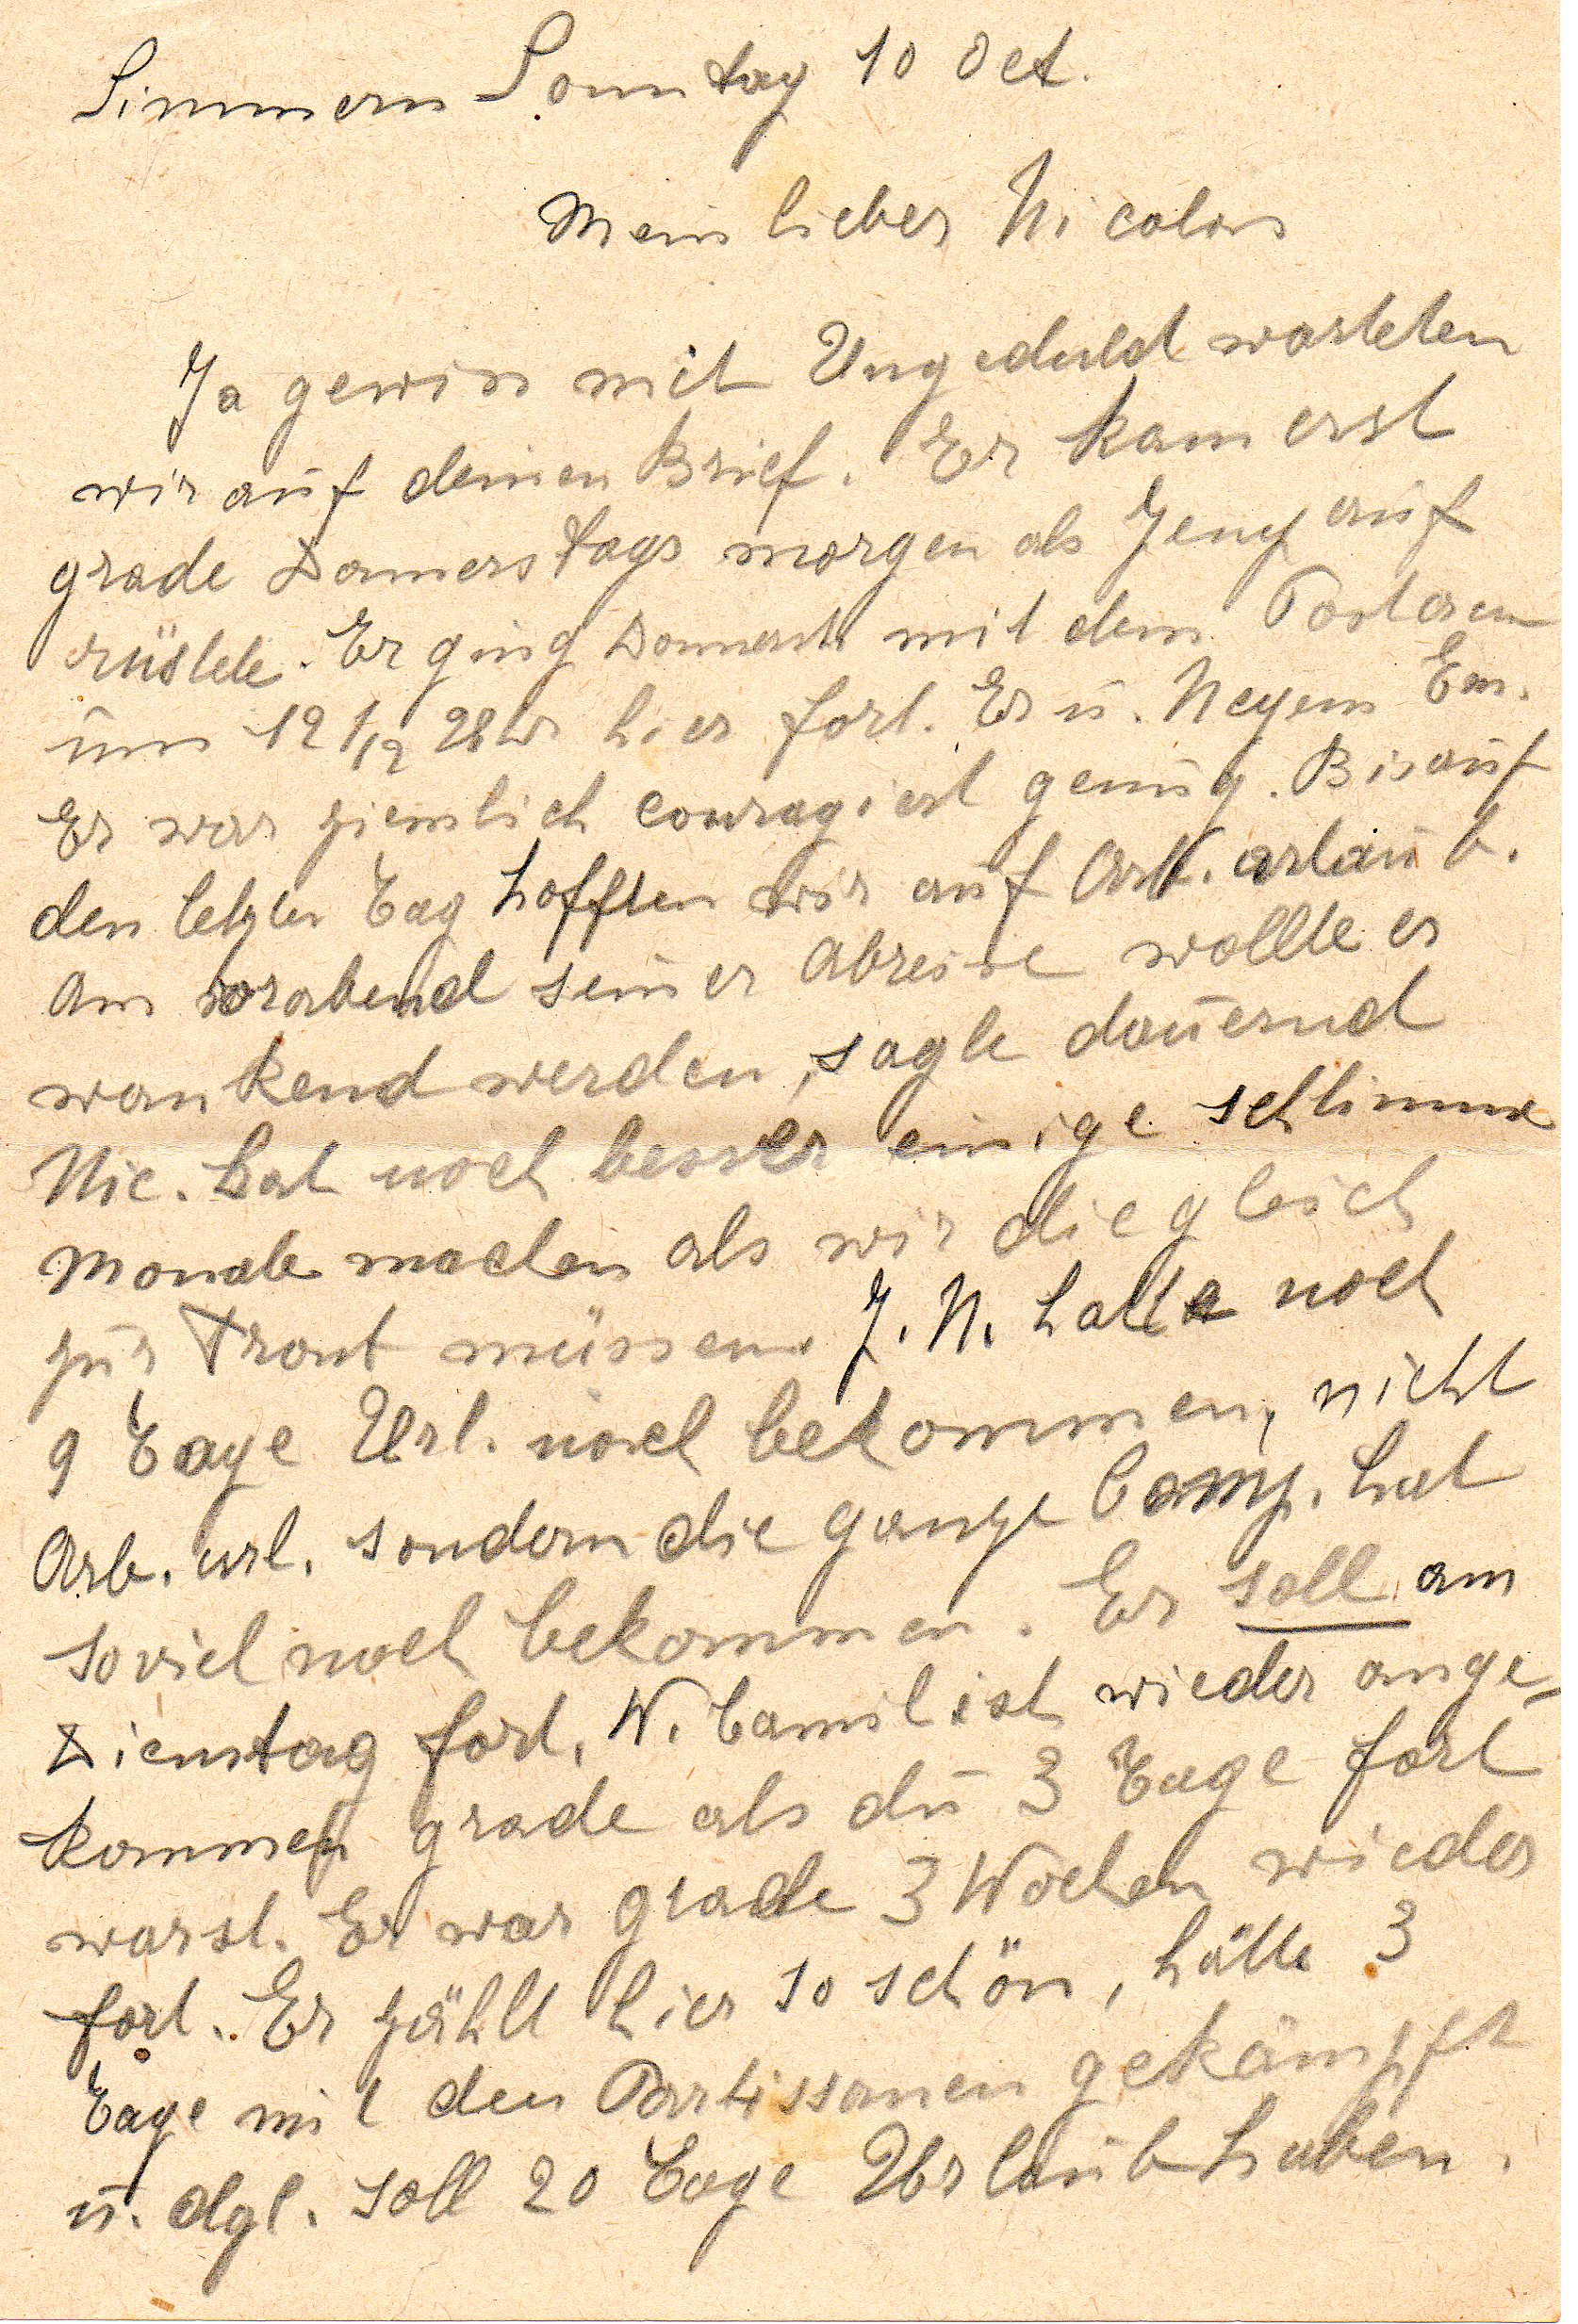 Simmern Sonntag 10 Oct.
Mein lieber Nicolas
Ja gewiss mit Ungeduld warteten
wir auf deinen Brief. Er kam erst
grade Donnerstags morgen als Jeng auf
rüstete. Er ging Donnerst. mit dem
um 12 1/2 Uhr hier fort. Er u. Neyens Em.
Er war ziemlich couragiert genug. Bis auf
den letzten Tag hofften wir auf Arb. urlaub.
Am vorabend seiner Abreise wollte er
wankend werden, sagte dauernd
Nic. hat noch besser einige schlimme
Monate machen als wir die gleich
zur Front müssen. J. N. hatte noch
9 Tage Url. noch bekommen, nicht
Arb. url. sondern die ganze Comp. hat
soviel noch bekommen. Er soll am
Dienstag fort. W. Camil ist wieder ange-
kommen grade als du 3 Tage fort
warst. Er war grade 3 Wochen wieder
fort. Er zählt hier so schön, hätte 3
Tage mit den Partissanen gekämpft
u. dgl. soll 20 Tage Urlaub haben.